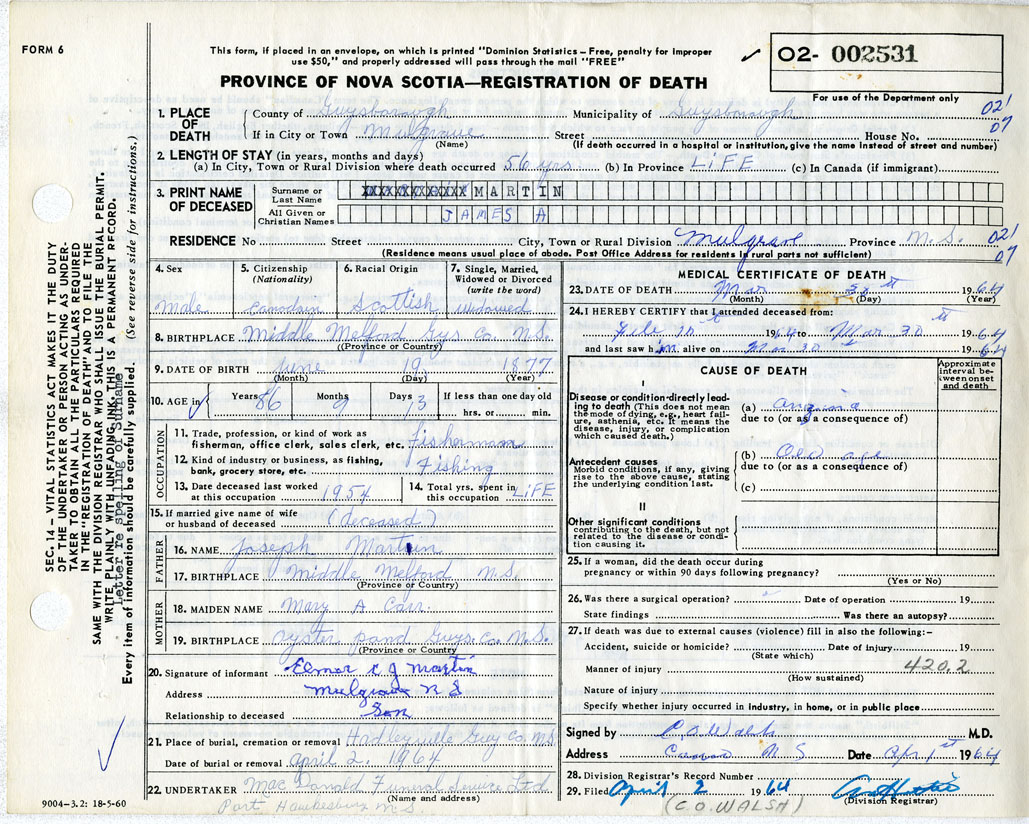 FORM 6
This form, if placed in an envelope, on which is printed "Dominion Statistics – Free, penalty for improper
use $50," and properly addressed will pass through the mail "FREE"
✓ 02- 002531
PROVINCE OF NOVA SCOTIA—REGISTRATION OF DEATH
For use of the Department only
1. PLACE OF DEATH { County of Guysborough Municipality of Guysborough 021
If in City or Town Mulgrave Street House No. 07
(Name) (If death occurred in a hospital or institution, give the name instead of street and number)
2. LENGTH OF STAY (in years, months and days)
(a) In City, Town or Rural Division where death occurred 56 yrs. (b) In Province LIFE (c) In Canada (if immigrant)
3. PRINT NAME OF DECEASED { Surname or Last Name XXXXXXXXXXX MARTIN
All Given or Christian Names JAMES A
RESIDENCE No Street City, Town or Rural Division Mulgrave Province N.S. 021
(Residence means usual place of abode. Post Office Address for residents in rural parts not sufficient) 07
4. Sex Male
5. Citizenship (Nationality) Canadain
6. Racial Origin Scottish
7. Single, Married, Widowed or Divorced (write the word) Widowed
8. BIRTHPLACE Middle Melford Guys. Co. N.S.
(Province or Country)
9. DATE OF BIRTH June 19 1877
(Month) (Day) (Year)
10. AGE in ✓ Years 86 Months 9 Days 13 If less than one day old
hrs. or min.
OCCUPATION
11. Trade, profession, or kind of work as fisherman, office clerk, sales clerk, etc. fishermam
12. Kind of industry or business, as fishing, bank, grocery store, etc. Fishing
13. Date deceased last worked at this occupation 1954
14. Total yrs. spent in this occupation LIFE
15. If married give name of wife or husband of deceased (deceased)
FATHER
16. NAME Joseph Martin
17. BIRTHPLACE Middle Melford N.S.
(Province or Country)
MOTHER
18. MAIDEN NAME Mary A Carr.
19. BIRTHPLACE Oyster pond Guys. Co. N.S.
(Province or Country
20. Signature of informant Elmar J Martin
Address Mulgrave N S
Relationship to deceased Son
21. Place of burial, cremation or removal Hadleyville Guy Co. N.S
Date of burial or removal April 2, 1964
22. UNDERTAKER MacDonald Funeral Service Ltd
(Name and address)
Port Hawkesbury N.S
9004-3.2: 18-5-60
MEDICAL CERTIFICATE OF DEATH
23. DATE OF DEATH Mar 30 1964
(Month) (Day) (Year)
24. I HEREBY CERTIFY that I attended deceased from:
1964 to Mar 30 1964
and last saw him alive on Mar 30 1964
CAUSE OF DEATH
Approximate interval between onset and death
I
Disease or condition directly leading to death (This does not mean the mode of dying, e.g., heart failure, asthenia, etc. It means the disease, injury, or complication which caused death.)
(a) angina
due to (or as a consequence of)
Antecedent causes
Morbid conditions, if any, giving rise to the above cause, stating the underlying condition last.
(b) Old age
due to (or as a consequence of)
(c)
II
Other significant conditions
contributing to the death, but not related to the disease or condition causing it.
25. If a woman, did the death occur during pregnancy or within 90 days following pregnancy?
(Yes or No)
26. Was there a surgical operation? Date of operation 19
State findings Was there an autopsy?
27. If death was due to external causes (violence) fill in also the following:–
Accident, suicide or homicide? Date of injury 19
(State which)
Manner of injury 420.2
(How sustained)
Nature of injury
Specify whether injury occurred in industry, in home, or in public place
Signed by C.O. Walsh M.D.
Address N S Date Apr 1st 1964
28. Division Registrar's Record Number
29. Filed April 2 1964
(C.O. WALSH) (Division Registrar)
SEC. 14 – VITAL STATISTICS ACT MAKES IT THE DUTY
OF THE UNDERTAKER OR PERSON ACTING AS UNDER-
TAKER TO OBTAIN ALL THE PARTICULARS REQUIRED
IN THE "REGISTRATION OF DEATH" AND TO FILE THE
SAME WITH THE DIVISION REGISTRAR WHO SHALL ISSUE THE BURIAL PERMIT.
WRITE PLAINLY WITH UNFADING INK, THIS IS A PERMANENT RECORD.
Letter re spelling of Surname
Every item of information should be carefully supplied. (See reverse side for instructions.)